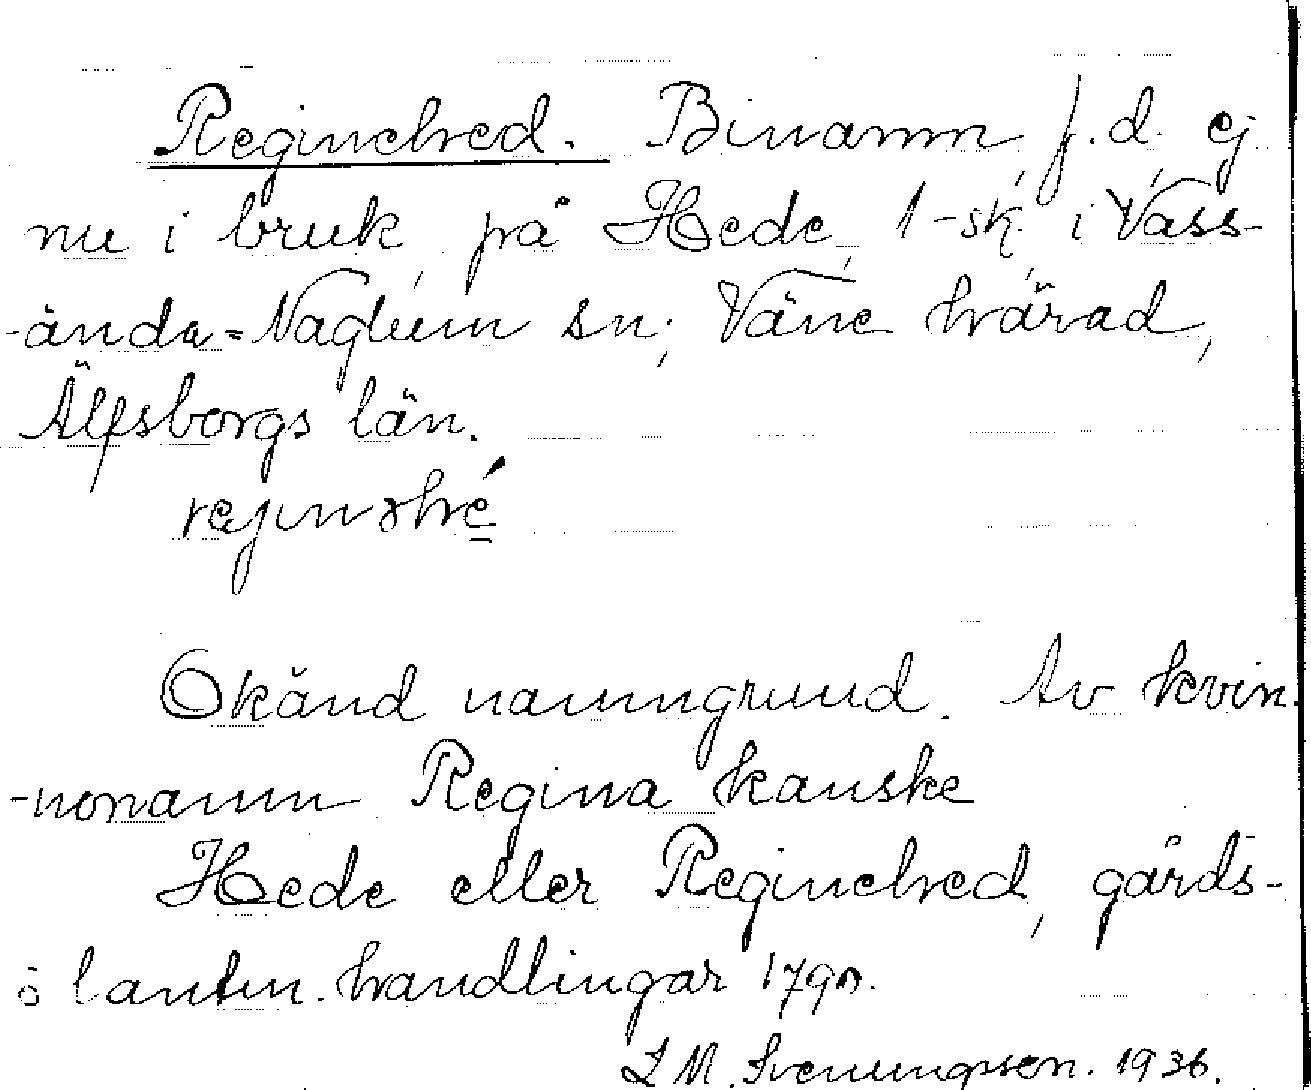 Reginehed. Binamn, f.d. ej
nu i bruk på Hede, 1-sk. i Väss-
-ända-Naglum sn, Väne härad,
Älfsborgs län.
Okänd namngrund. Av kvin-
-nonamn Regina kanske
Hede eller Reginehed, gårds-
ö lantm. handlingar
L M. Svenungsson. 1936.